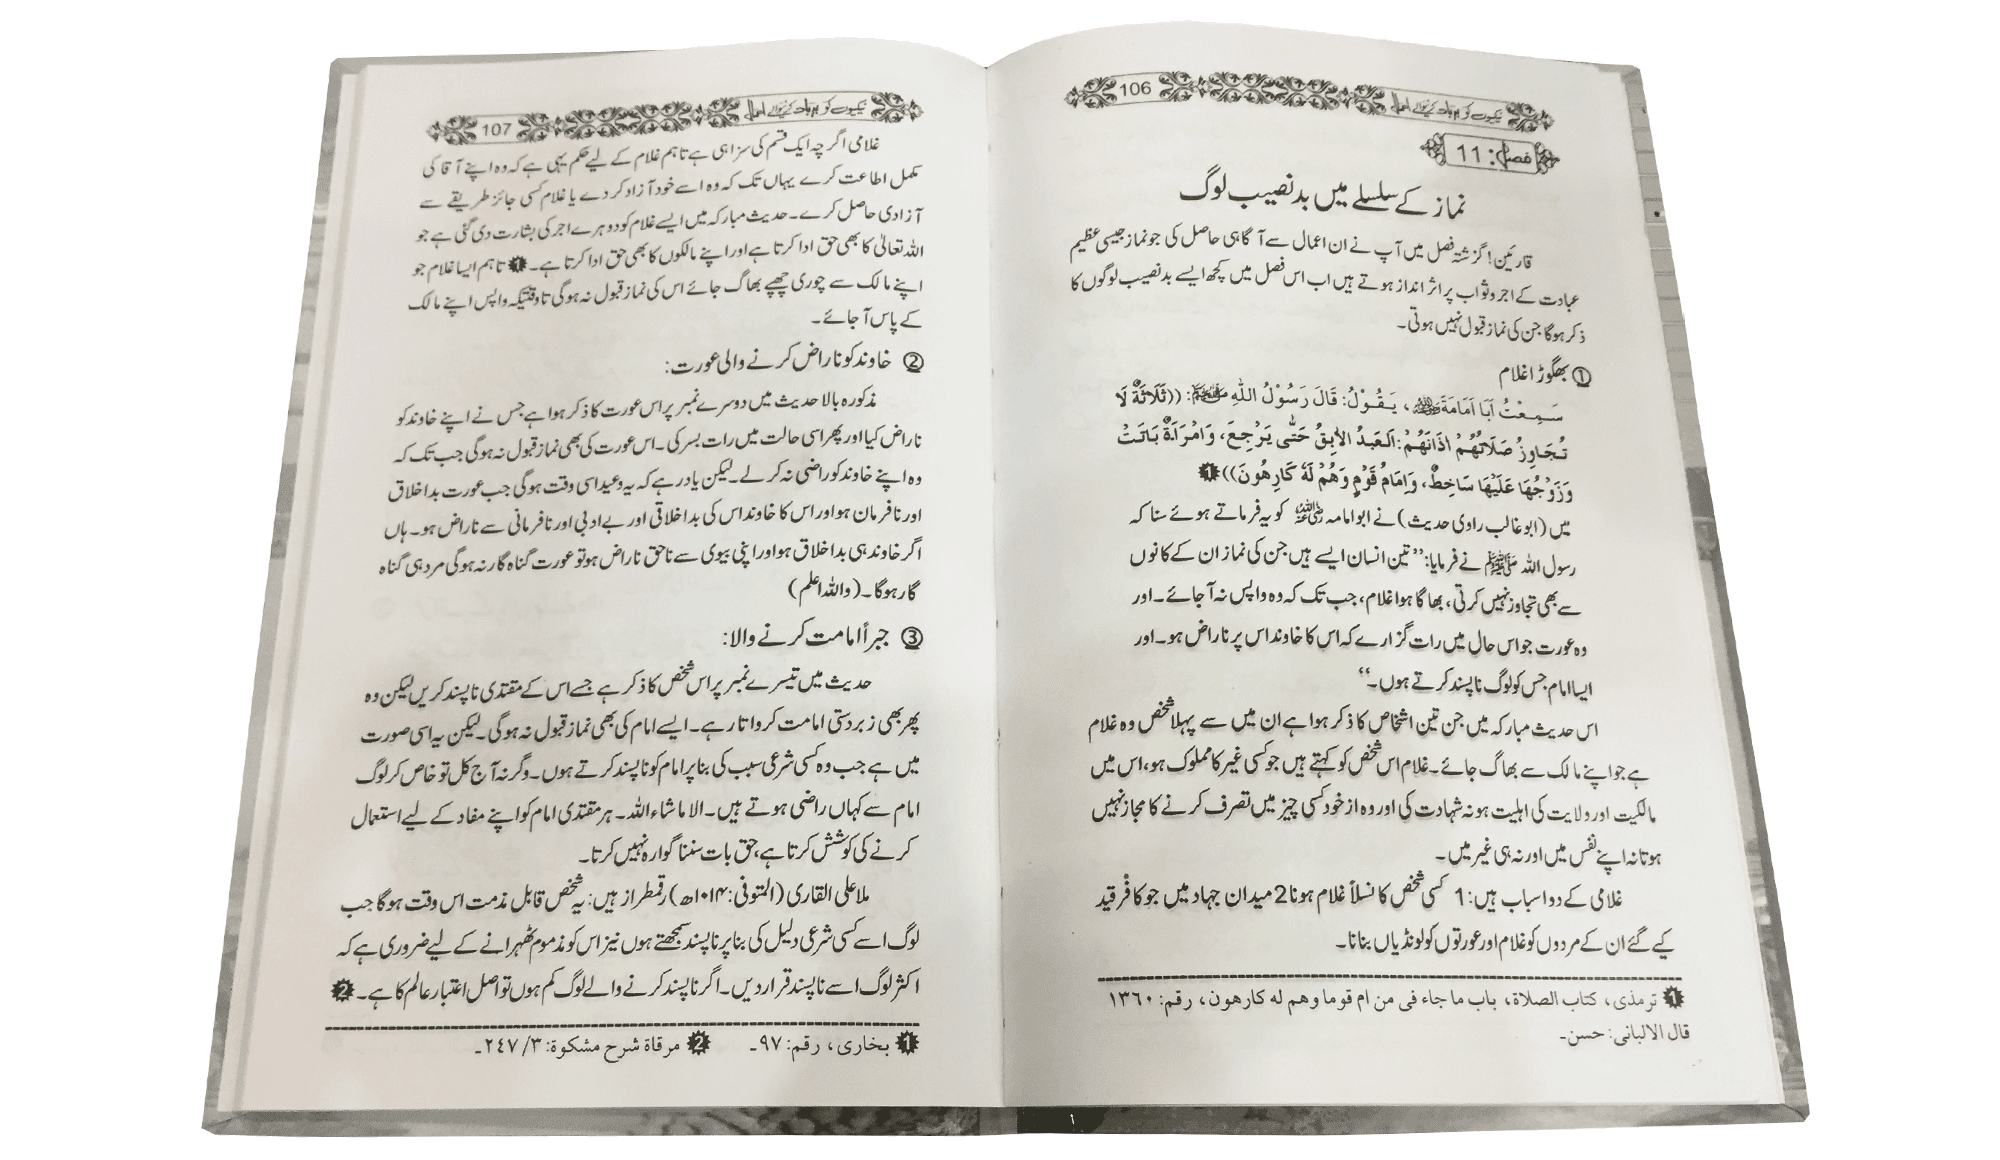 نیکیوں کو برباد کرنے والے اعمال 106
فصل: 11
نماز کے سلسلے میں بدنصیب لوگ
قارئین! گزشتہ فصل میں آپ نے ان اعمال سے آگاہی حاصل کی جو نماز جیسی عظیم
عبادت کے اجر و ثواب پر اثر انداز ہوتے ہیں اب اس فصل میں کچھ ایسے بدنصیب لوگوں کا
ذکر ہوگا جن کی نماز قبول نہیں ہوتی۔
① بھگوڑا غلام
سَمِعْتُ اَبَا اُمَامَةَ رضی اللہ عنہ، يَقُوْلُ: قَالَ رَسُوْلُ اللّٰهِ ﷺ: ((ثَلَاثَةٌ لَا
تُجَاوِزُ صَلَاتُهُمْ اٰذَانَهُمْ: اَلْعَبْدُ الْاٰبِقُ حَتّٰى يَرْجِعَ، وَامْرَاَةٌ بَاتَتْ
وَزَوْجُهَا عَلَيْهَا سَاخِطٌ، وَاِمَامُ قَوْمٍ وَهُمْ لَهٗ كَارِهُونَ)) 1
میں (ابو غالب راوی حدیث) نے ابو امامہ رضی اللہ عنہ کو یہ فرماتے ہوئے سنا کہ
رسول اللہ ﷺ نے فرمایا: ’’تین انسان ایسے ہیں جن کی نماز ان کے کانوں
سے بھی تجاوز نہیں کرتی، بھاگا ہوا غلام، جب تک کہ وہ واپس نہ آجائے۔ اور
وہ عورت جو اس حال میں رات گزارے کہ اس کا خاوند اس پر ناراض ہو۔ اور
ایسا امام جس کو لوگ ناپسند کرتے ہوں۔‘‘
اس حدیث مبارکہ میں جن تین اشخاص کا ذکر ہوا ہے ان میں سے پہلا شخص وہ غلام
ہے جو اپنے مالک سے بھاگ جائے۔ غلام اس شخص کو کہتے ہیں جو کسی غیر کا مملوک ہو، اس میں
مالکیت اور ولایت کی اہلیت ہو نہ شہادت کی اور وہ از خود کسی چیز میں تصرف کرنے کا مجاز نہیں
ہوتا نہ اپنے نفس میں اور نہ ہی غیر میں۔
غلامی کے دو اسباب ہیں: 1 کسی شخص کا نسلاً غلام ہونا 2 میدان جہاد میں جو کافر قید
کیے گئے ان کے مردوں کو غلام اور عورتوں کو لونڈیاں بنانا۔
1 ترمذی، کتاب الصلاة، باب ما جاء فی من ام قوما وهم له کارهون، رقم: ۱۳٦۰
قال الالبانی: حسن۔
نیکیوں کو برباد کرنے والے اعمال 107
غلامی اگرچہ ایک قسم کی سزا ہی ہے تاہم غلام کے لیے حکم یہی ہے کہ وہ اپنے آقا کی
مکمل اطاعت کرے یہاں تک کہ وہ اسے خود آزاد کر دے یا غلام کسی جائز طریقے سے
آزادی حاصل کرے۔ حدیث مبارکہ میں ایسے غلام کو دوہرے اجر کی بشارت دی گئی ہے جو
اللہ تعالیٰ کا بھی حق ادا کرتا ہے اور اپنے مالکوں کا بھی حق ادا کرتا ہے۔ 1 تاہم ایسا غلام جو
اپنے مالک سے چوری چھپے بھاگ جائے اس کی نماز قبول نہ ہوگی تاوقتیکہ واپس اپنے مالک
کے پاس آجائے۔
② خاوند کو ناراض کرنے والی عورت:
مذکورہ بالا حدیث میں دوسرے نمبر پر اس عورت کا ذکر ہوا ہے جس نے اپنے خاوند کو
ناراض کیا اور پھر اسی حالت میں رات بسر کی۔ اس عورت کی بھی نماز قبول نہ ہوگی جب تک کہ
وہ اپنے خاوند کو راضی نہ کر لے۔ لیکن یاد رہے کہ یہ وعید اسی وقت ہوگی جب عورت بداخلاق
اور نافرمان ہو اور اس کا خاوند اس کی بداخلاقی اور بے ادبی اور نافرمانی سے ناراض ہو۔ ہاں
اگر خاوند ہی بداخلاق ہو اور اپنی بیوی سے ناحق ناراض ہو تو عورت گناہ گار نہ ہوگی مرد ہی گناہ
گار ہوگا۔ (واللہ اعلم)
③ جبراً امامت کرنے والا:
حدیث میں تیسرے نمبر پر اس شخص کا ذکر ہے جسے اس کے مقتدی ناپسند کریں لیکن وہ
پھر بھی زبردستی امامت کرواتا رہے۔ ایسے امام کی بھی نماز قبول نہ ہوگی۔ لیکن یہ اسی صورت
میں ہے جب وہ کسی شرعی سبب کی بنا پر امام کو ناپسند کرتے ہوں۔ وگرنہ آج کل تو خاص کر لوگ
امام سے کہاں راضی ہوتے ہیں۔ الا ماشاء اللہ۔ ہر مقتدی امام کو اپنے مفاد کے لیے استعمال
کرنے کی کوشش کرتا ہے، حق بات سننا گوارہ نہیں کرتا۔
ملا علی القاری (المتوفی: ۱۰۱۴ھ) رقمطراز ہیں: یہ شخص قابل مذمت اس وقت ہوگا جب
لوگ اسے کسی شرعی دلیل کی بنا پر ناپسند سمجھتے ہوں نیز اس کو مذموم ٹھہرانے کے لیے ضروری ہے کہ
اکثر لوگ اسے ناپسند قرار دیں۔ اگر ناپسند کرنے والے لوگ کم ہوں تو اصل اعتبار عالم کا ہے۔ 2
1 بخاری، رقم: ۹۷۔ 2 مرقاة شرح مشکوة: ۳/ ۲٤۷۔